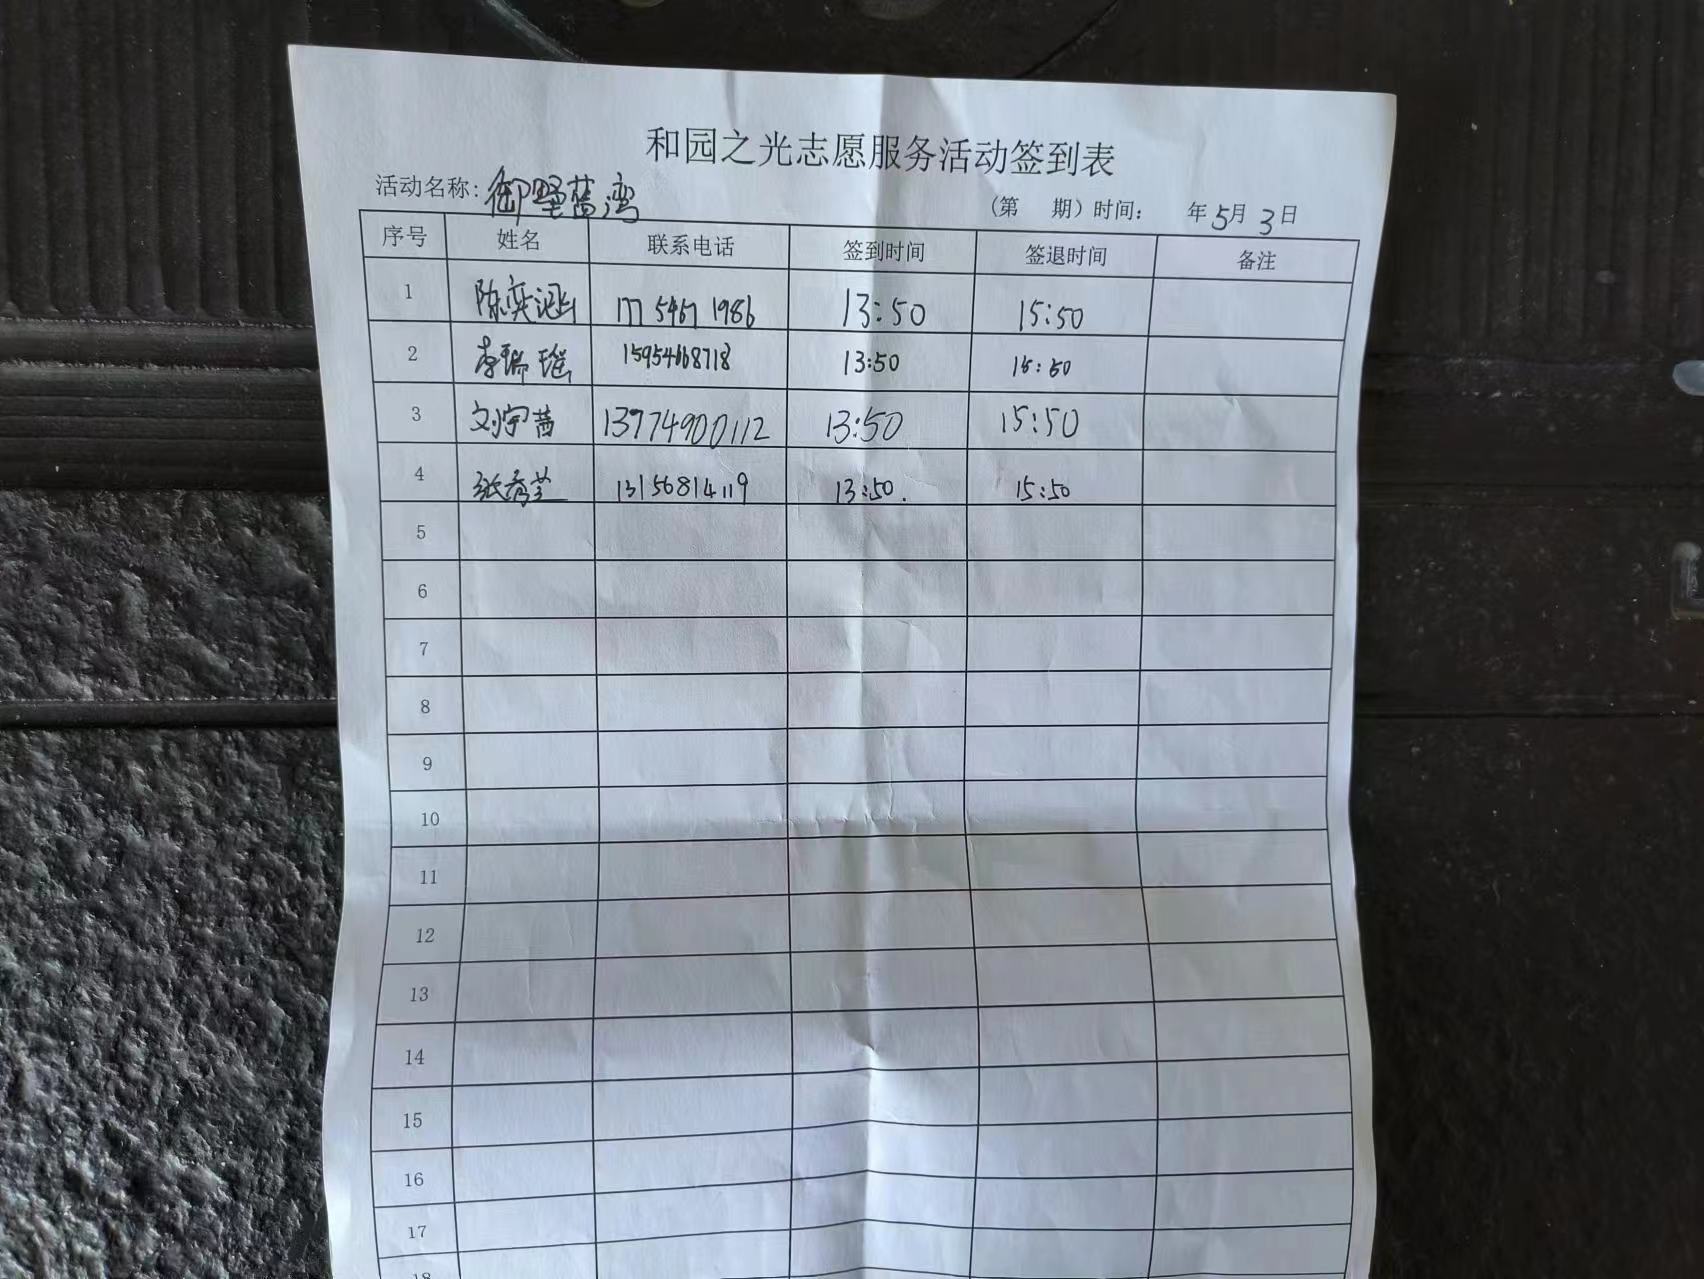 和园之光志愿服务活动签到表
活动名称: 御墅蓝湾 (第 期) 时间: 年 5月 3日
序号 姓名 联系电话 签到时间 签退时间 备注
1 陈奕涵 177 5467 1986 13:50 15:50
2 李瑞瑶 15954668718 13:50 15:50
3 刘宇茜 13974900112 13:50 15:50
4 张秀兰 13156814119 13:50. 15:50
5
6
7
8
9
10
11
12
13
14
15
16
17
18